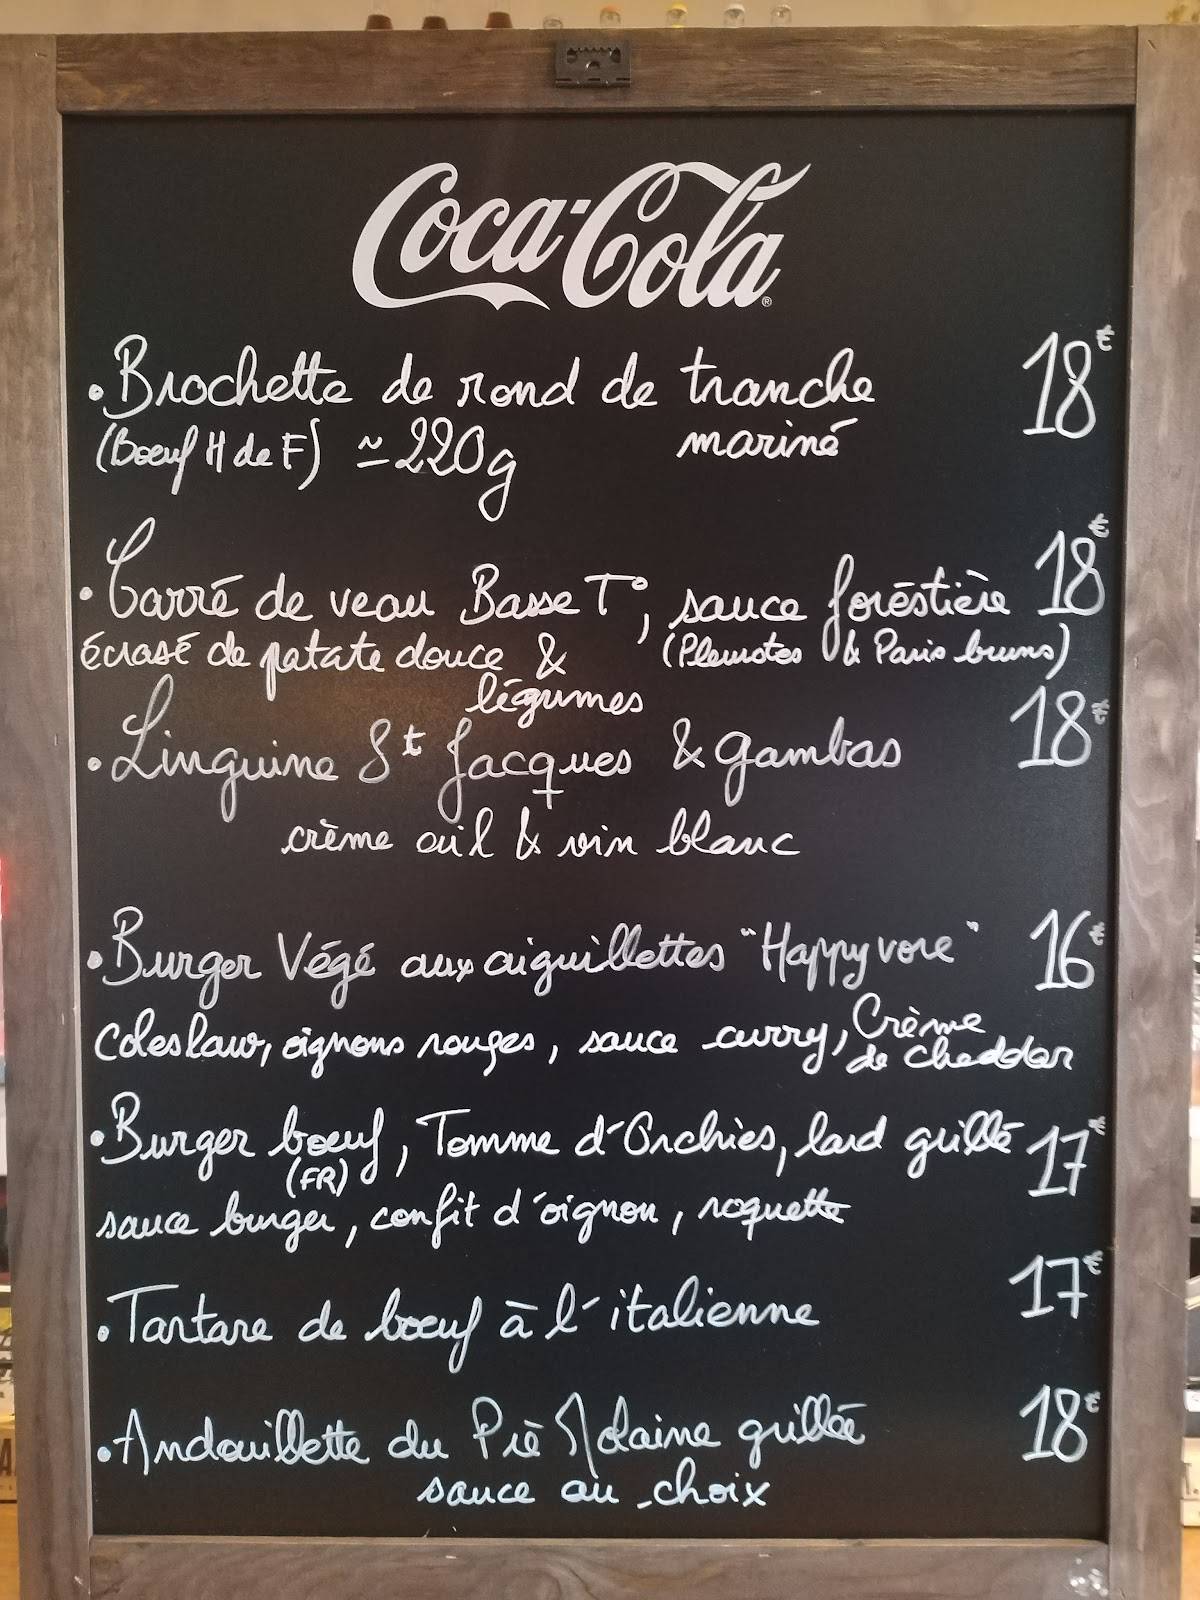 Coca-Cola
• Brochette de rond de tranche 18€
(Bœuf H de F) ≃ 220g mariné
• Carré de veau Basse T°, sauce foréstière 18€
écrasé de patate douce & légumes (Pleurotes & Paris bruns)
• Linguine St Jacques & gambas 18€
crème ail & vin blanc
• Burger Végé aux aiguillettes "Happyvore" 16€
coleslaw, oignons rouges, sauce curry, Crème de cheddar
• Burger bœuf, Tomme d'Orchies, lard grillé 17€
(FR)
sauce burger, confit d'oignon, roquette
• Tartare de bœuf à l'italienne 17€
• Andouillette du Pré Molaine grillée 18€
sauce au choix